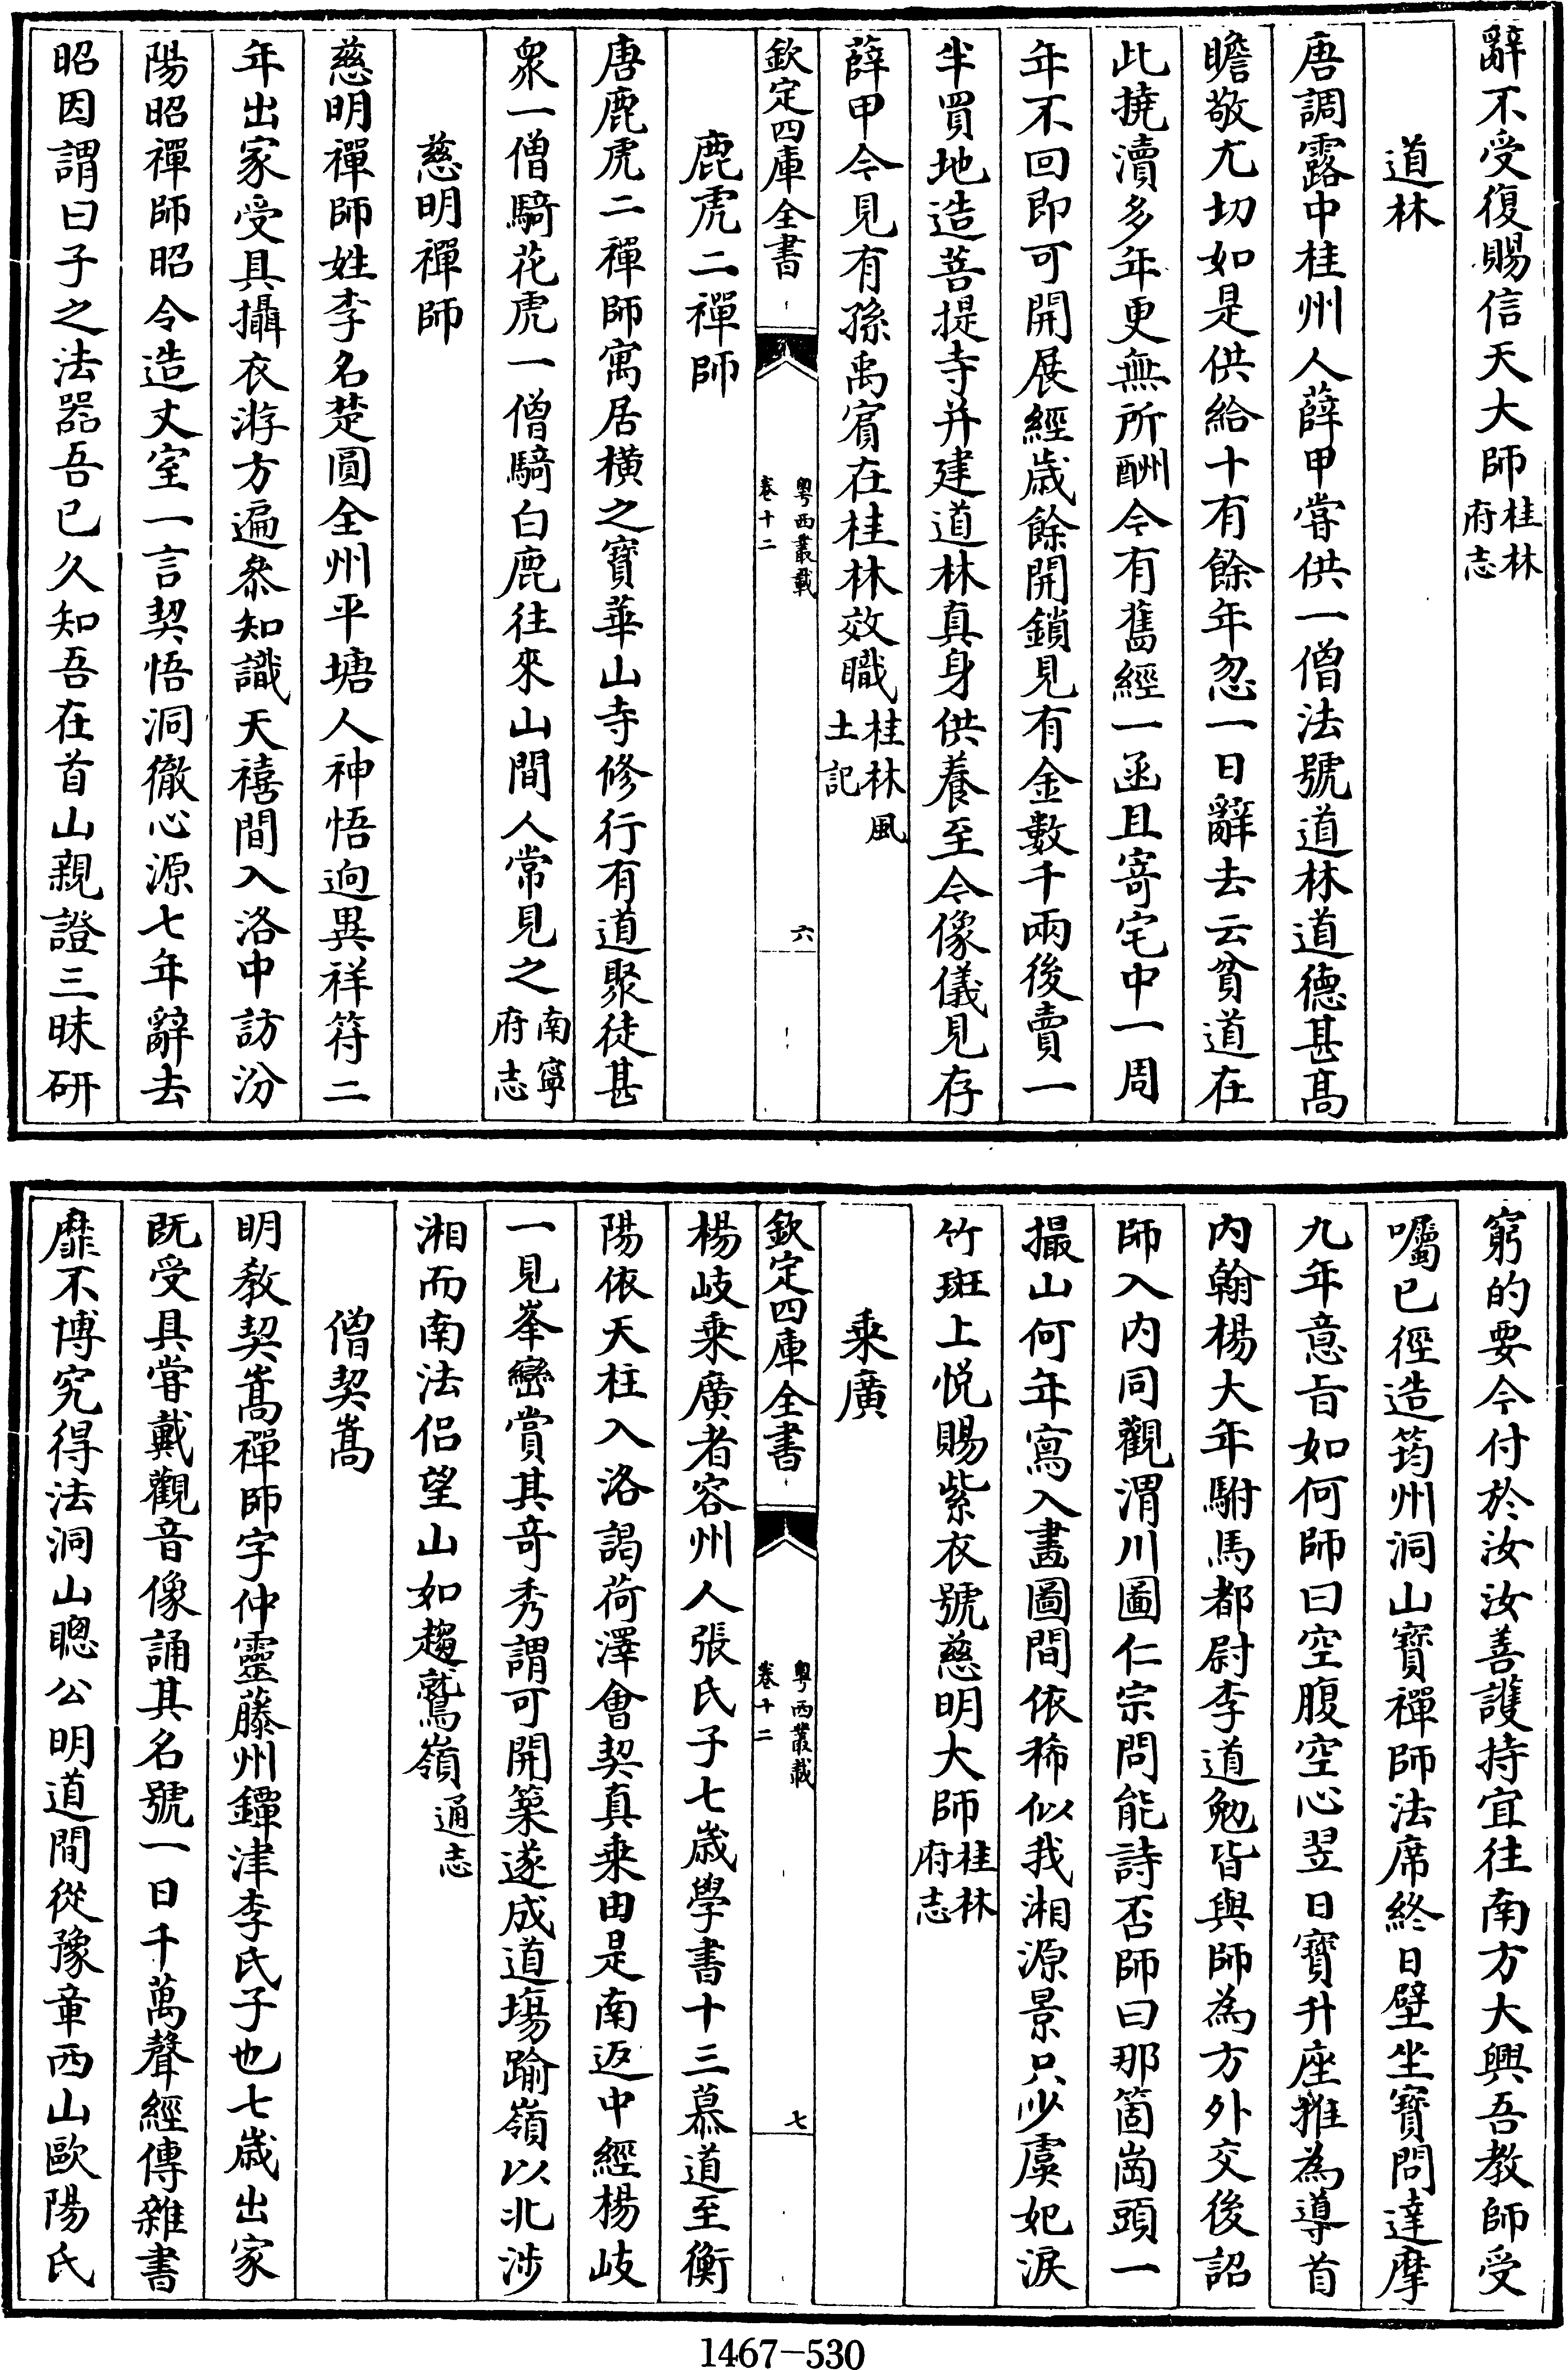 辭不受復賜信天大師桂林府志
道林
唐調露中桂州人薛甲嘗供一僧法號道林道德甚髙
瞻敬尤切如是供給十有餘年忽一日辭去云貧道在
此撓瀆多年更無所酬今有舊經一函且寄宅中一周
年不回即可開展經歲餘開鎖見有金數千兩後賣一
半買地造菩提寺并建道林真身供養至今像儀見存
薛甲今見有孫禹賔在桂林效職桂林風土記
欽定四庫全書
粤西叢載
卷十二
六
鹿虎二禪師
唐鹿虎二禪師寓居橫之寶華山寺修行有道聚徒甚
衆一僧騎花虎一僧騎白鹿往來山間人常見之南寧府志
慈明禪師
慈明禪師姓李名楚圓全州平塘人神悟逈異祥符二
年出家受具攝衣游方遍叅知識天禧間入洛中訪汾
陽昭禪師昭令造丈室一言契悟洞徹心源七年辭去
昭因謂曰子之法器吾已久知吾在首山親證三昧研
窮的要今付於汝汝善護持宜往南方大興吾教師受
囑已徑造筠州洞山寶禪師法席終日壁坐寶問達摩
九年意旨如何師曰空腹空心翌日寶升座推為導首
内翰楊大年駙馬都尉李道勉皆與師為方外交後詔
師入内同觀渭川圖仁宗問能詩否師曰那箇崗頭一
撮山何年寫入畫圖間依稀似我湘源景只少虞妃淚
竹斑上悅賜紫衣號慈明大師桂林府志
乘廣
欽定四庫全書
粤西叢載
卷十二
七
楊岐乘廣者容州人張氏子七歲學書十三慕道至衡
陽依天柱入洛謁荷澤會契真乘由是南返中經楊岐
一見峯巒賞其奇秀謂可開築遂成道塲踰嶺以北涉
湘而南法侣望山如趨鷲嶺通志
僧契嵩
明教契嵩禪師字仲靈藤州鐔津李氏子也七歲出家
既受具嘗戴觀音像誦其名號一日千萬聲經傳雜書
靡不博究得法洞山聰公明道間從豫章西山歐陽氏
1467-530